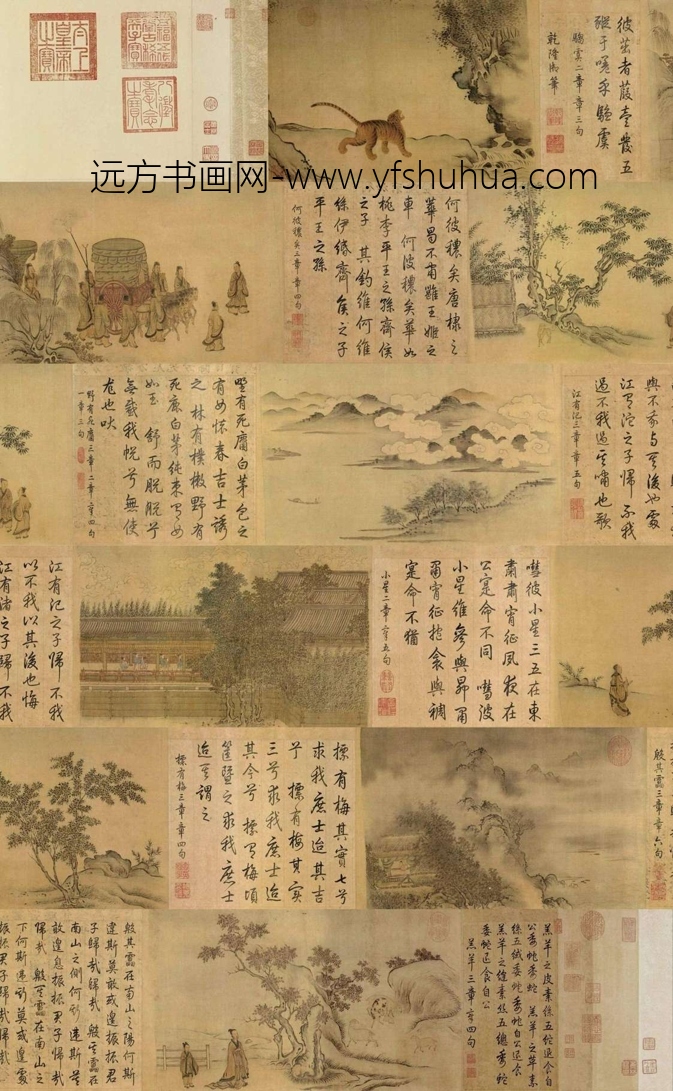 太上皇帝之寶
八徵耄念之寶
彼茁者葭壹發五
豵于嗟乎騶虞
騶虞二章章三句
乾隆御筆
远方书画网-www.yfshuhua.com
何彼穠矣唐棣之
華曷不肅雝王姬之
車 何彼穠矣華如
桃李平王之孫齊侯
之子 其釣維何維
絲伊緡齊侯之子
平王之孫
何彼穠矣三章章四句
野有死麕白茅包之
有女懷春吉士誘
之 林有樸樕野有
死鹿白茅純束有女
如玉 舒而脫脫兮
無感我帨兮無使
尨也吠
野有死麕三章二章章四句
一章三句
與不我與其後也處
江有沱之子歸不我
過不我過其嘯也歌
江有汜三章章五句
江有汜之子歸不我
以不我以其後也悔
江有渚之子歸不我
嘒彼小星三五在東
肅肅宵征夙夜在
公寔命不同 嘒彼
小星維參與昴肅
肅宵征抱衾與裯
寔命不猶
小星二章章五句
摽有梅其實七兮
求我庶士迨其吉
兮 摽有梅其實
三兮求我庶士迨
其今兮 摽有梅頃
筐塈之求我庶士
迨其謂之
摽有梅三章章四句
殷其靁三章章六句
殷其靁在南山之陽何斯
違斯莫敢或遑振振君
子歸哉歸哉 殷其靁在
南山之側何斯違斯莫
敢遑息振振君子歸哉
歸哉 殷其靁在南山之
下何斯違斯莫或遑處
振振君子歸哉歸哉
羔羊之皮素絲五紽退食自
公委蛇委蛇 羔羊之革素
絲五緎委蛇委蛇自公退食
羔羊之縫素絲五總委蛇
委蛇退食自公
羔羊三章章四句